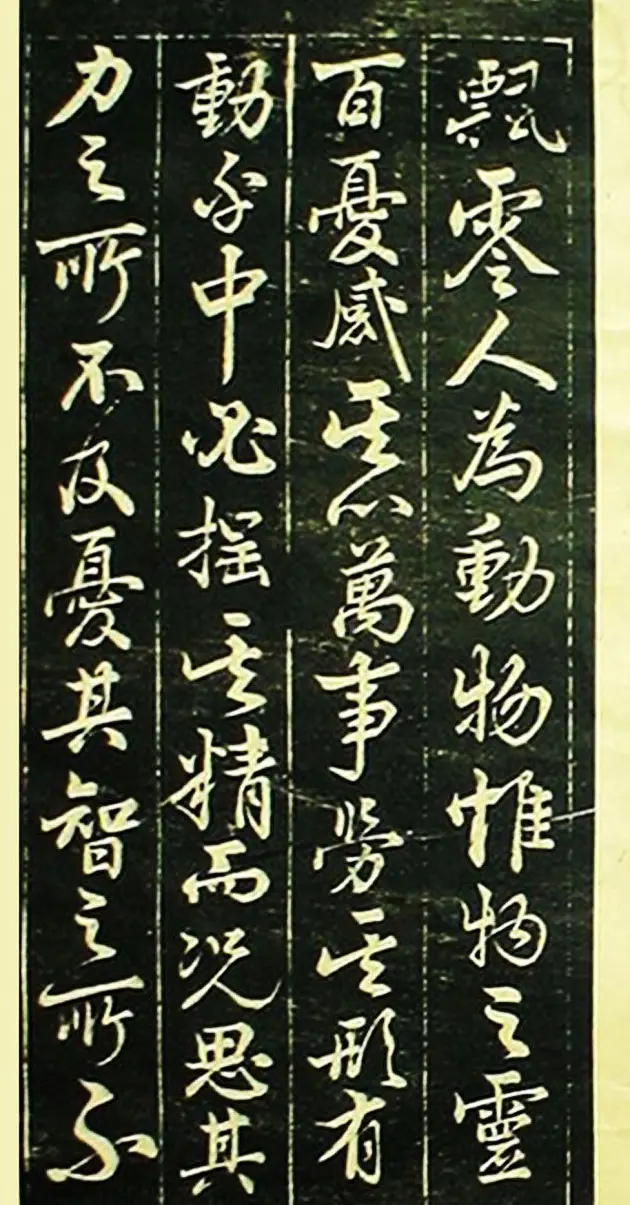 飄零人為動物惟物之靈
百憂感其心萬事勞其形有
動于中必搖其精而況思其
力之所不及憂其智之所不